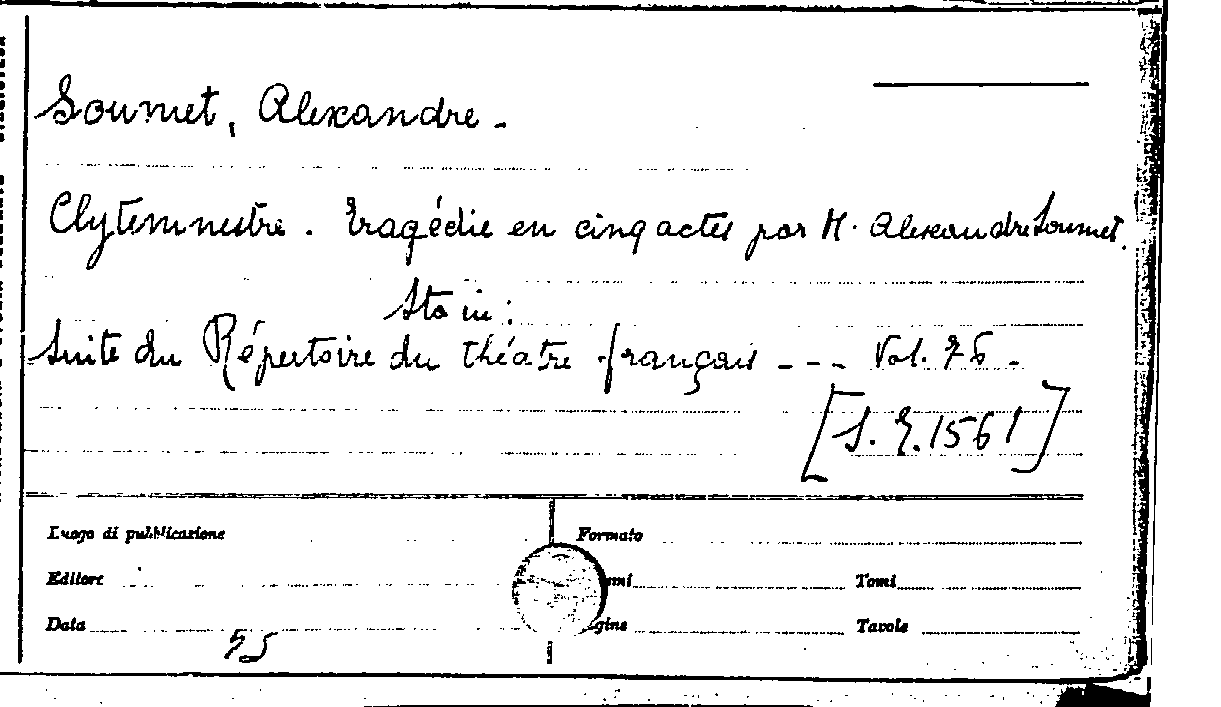 Soumet, Alexandre.-
Clytemnestre. Tragédie en cinq actes par M. Alexandre Soumet.
Sta in:
Suite du Répertoire du théatre français --- Vol. 76-
[S. E. 1561]
Luogo di pubblicazione
Formato
Editore
Tomi
Data
Tavole